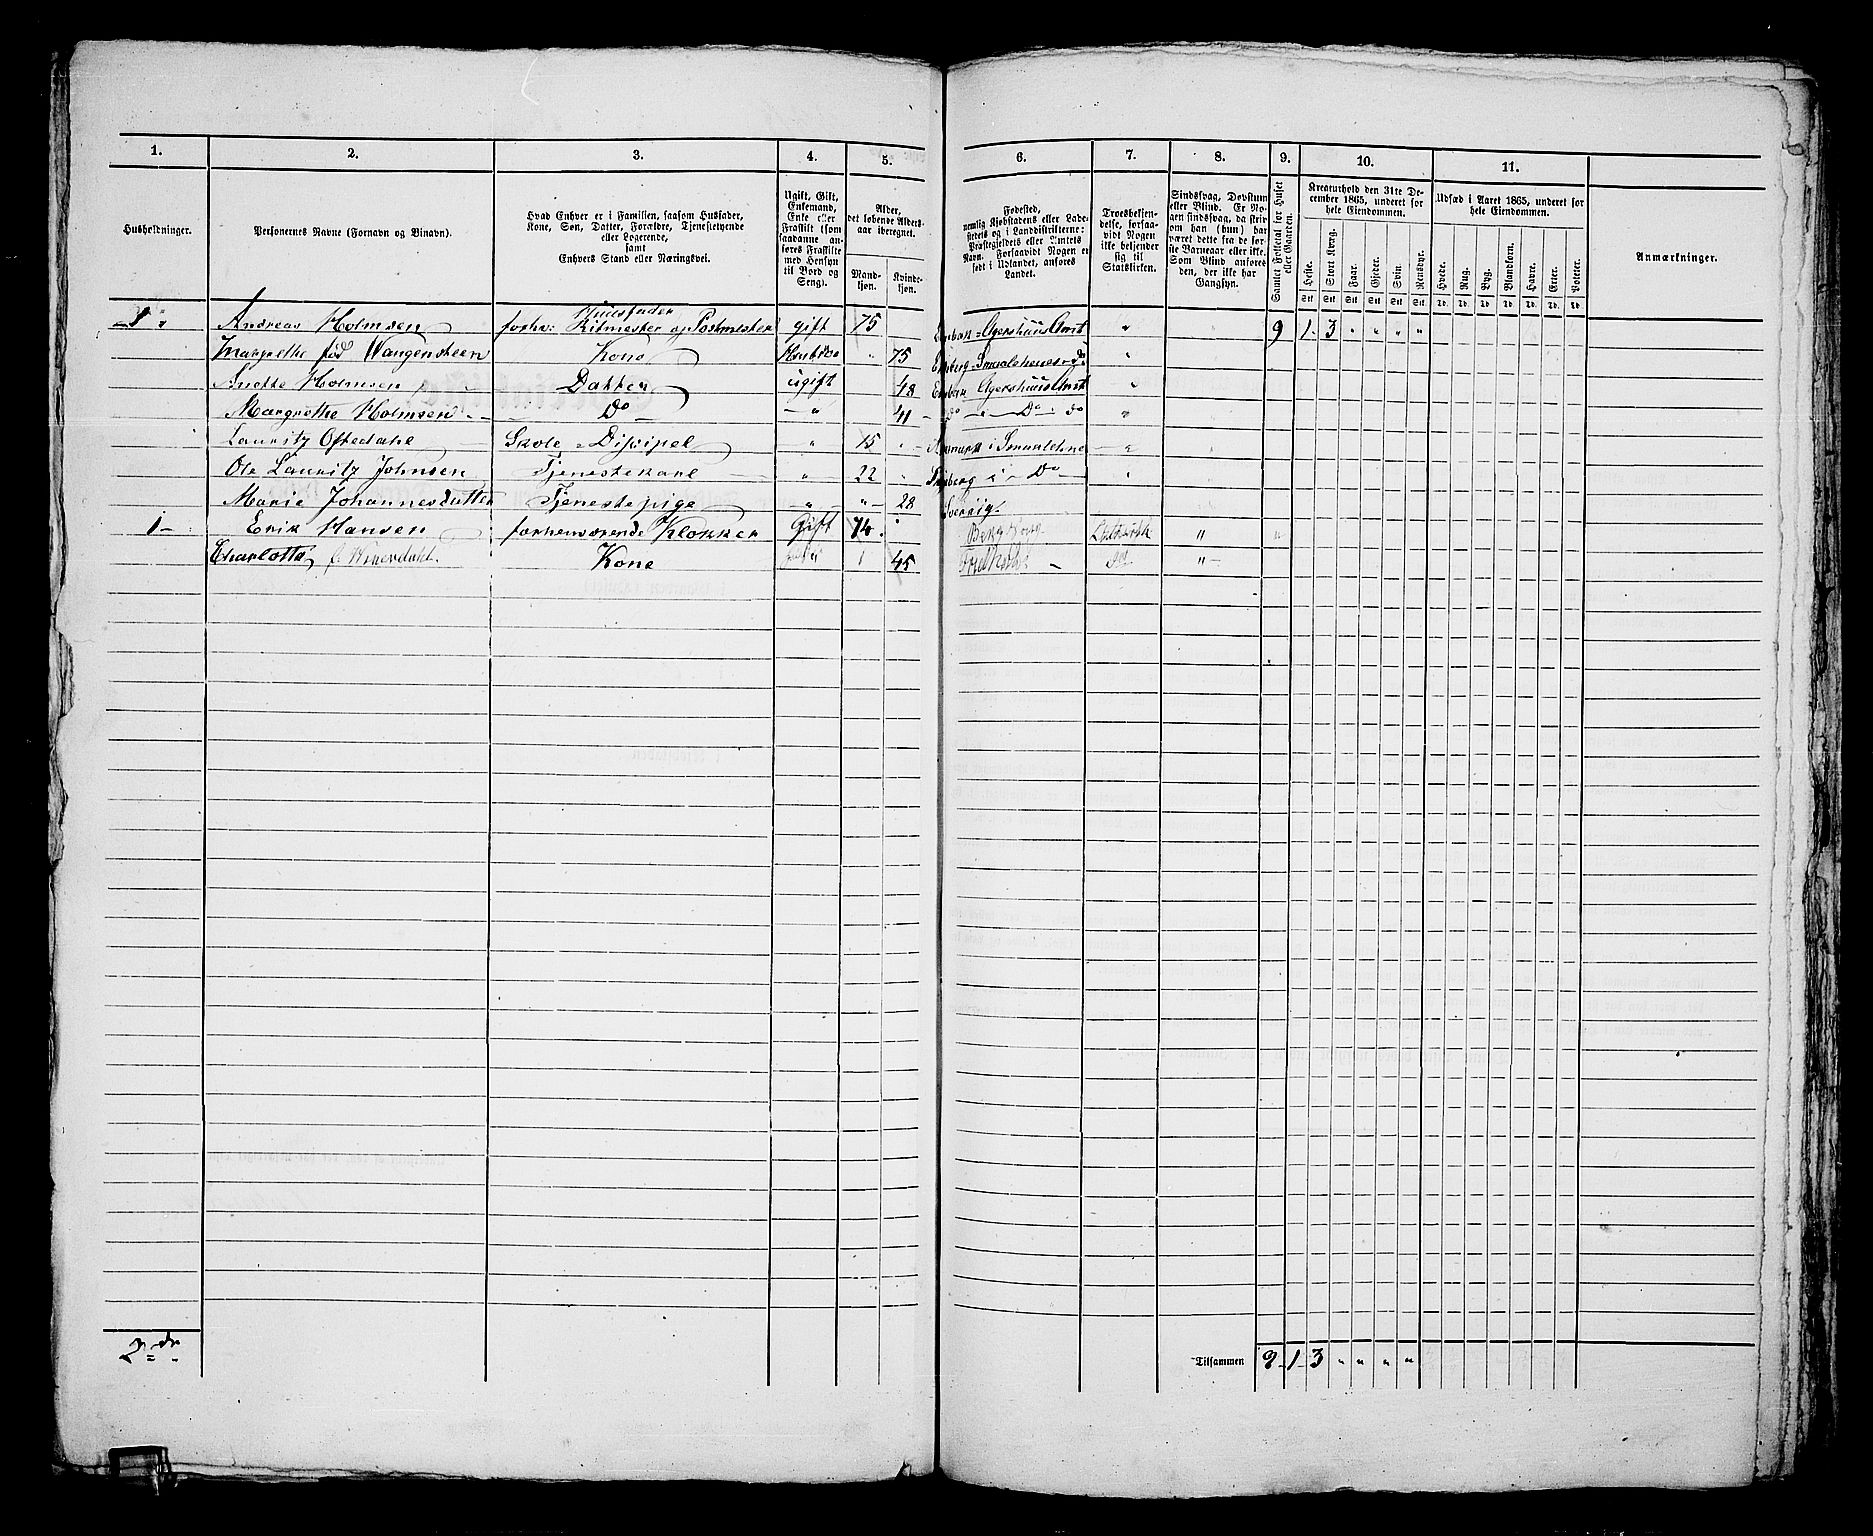 1. 2. 3. 4. 5. 6. 7. 8. 9. 10. 11.
Husholdninger.
Personernes Navne (Fornavn og Binavn).
Hvad Enhver er i Familien, saasom Husfader,
Kone, Søn, Datter, Forældre, Tjenestetyende
eller Logerende,
samt
Enhvers Stand eller Næringsvei.
Ugift, Gift,
Enkemand,
Enke eller
Fraskilt (som
saadanne an-
føres Fraskilte
med Hensyn
til Bord og
Seng).
Alder,
det løbende Alders-
aar iberegnet.
Mand-
kjøn.
Kvinde-
kjøn.
Fødested,
nemlig Kjøbstadens eller Lade-
stedets og i Landdistrikterne:
Præstegjeldets eller Amtets
Navn. Forsaavidt Nogen er
født i Udlandet, anføres
Landet.
Troesbekjen-
delse, forsaa-
vidt Nogen
ikke bekjender
sig til
Statskirken.
Sindssvag, Døvstum
eller Blind. Er No-
gen sindssvag, da skri-
ves om han (hun) har
været dette fra de før-
ste Barneaar eller ikke.
Som Blind anføres
den, der ikke har
Gangsyn.
Samlet Folketal for Huset
eller Gaarden.
Kreaturhold den 31te De-
cember 1865, underet for
hele Eiendommen.
Heste. Stort Kvæg. Faar. Gjeder. Svin. Rensdyr.
Stk Stk Stk Stk Stk Stk
Udsæd i Aaret 1865, underet for
hele Eiendommen.
Hvede. Rug. Byg. Blandkorn. Havre. Erter. Poteter.
Td. Td. Td. Td. Td. Td. Td.
Anmærkninger.
Huusfader
1 Andreas Holmsen forhv: Ritmester og Postmester gift 75 Agershuus Amt " 9 1 3 " " " "
Margrethe fød Wangensteen Kone 75 "
Anette Holmsen Datter ugift 48 Agershuus Amt "
Margrethe Holmsen Do " 41 Do " Do do "
Lauritz Oftedahl Skole Discipel " 15 i Smaalehne "
Ole Lauritz Johnsen Tjenestekarl " 22 i Do "
Marie Johannesdatter Tjenestepige " " 28 Sverrig
1 Erik Hansen forhenværende Klokker Gift 74 "
Charlotte Kone 45 "
2
Tilsammen 9 1 3 " " " "